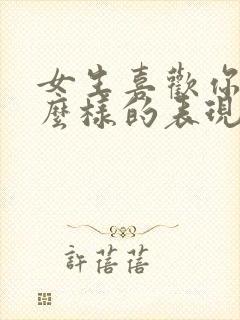 女生喜歡你
麼樣的表現
許蓓蓓